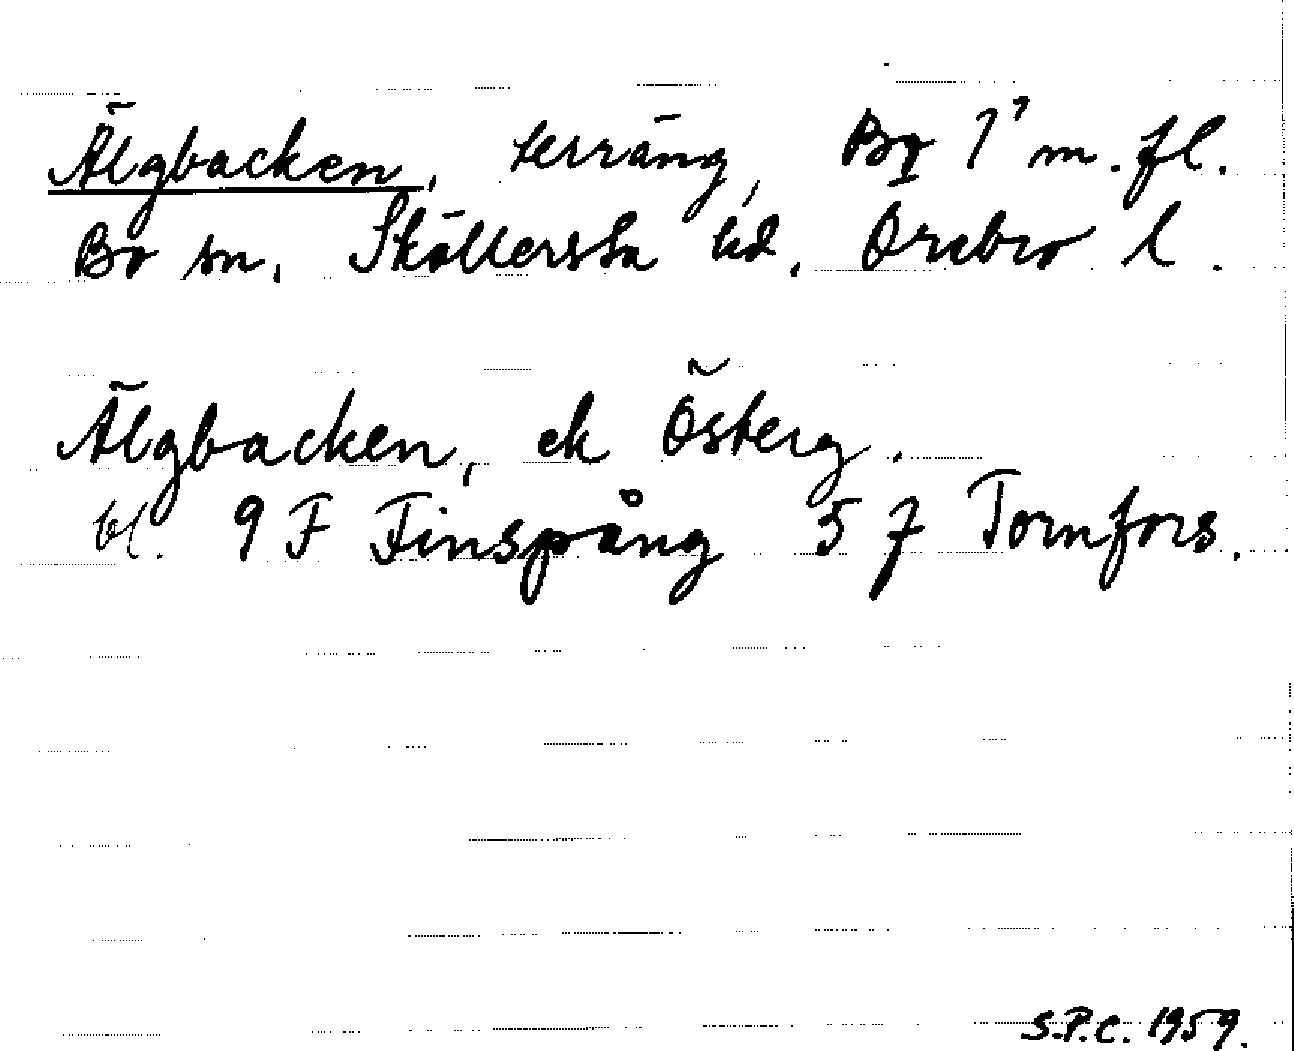 Älgbacken, terräng, Bo 1⁷ m.fl.
Bo sn, Sköllersta hd, Örebro l.
Älgbacken, ek Österg.
bl. 9 F Finspång 5 f Tornfors.
S.P.C. 1959.